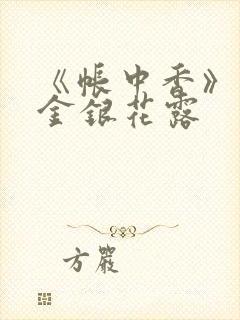 《帐中香》
金银花露
方严